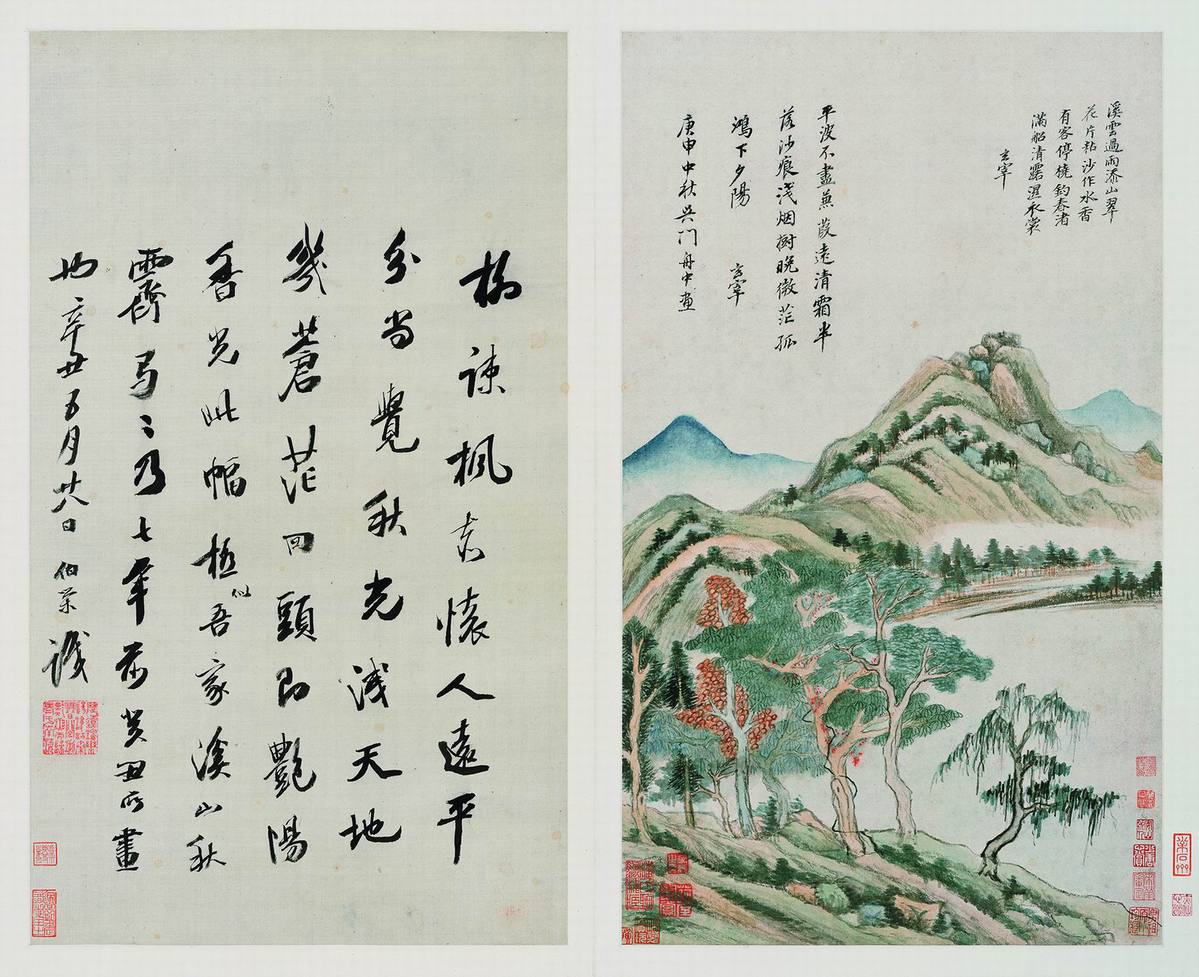 溪雲過雨添山翠
花片粘沙作水香
有客停橈釣春渚
滿船清露溼衣裳
玄宰
平波不盡蒹葭遠清霜半
落沙痕淺烟樹晚微茫孤
鴻下夕陽 玄宰
庚申中秋吳門舟中畫
柳疎楓赤懷人遠平
分尚覺秋光淺天地
幾蒼茫回頭即豔陽
香光此幅極似吾家溪山秋
霽弓〻乃七年前癸丑所畫
也辛丑五月廿八日伯榮識